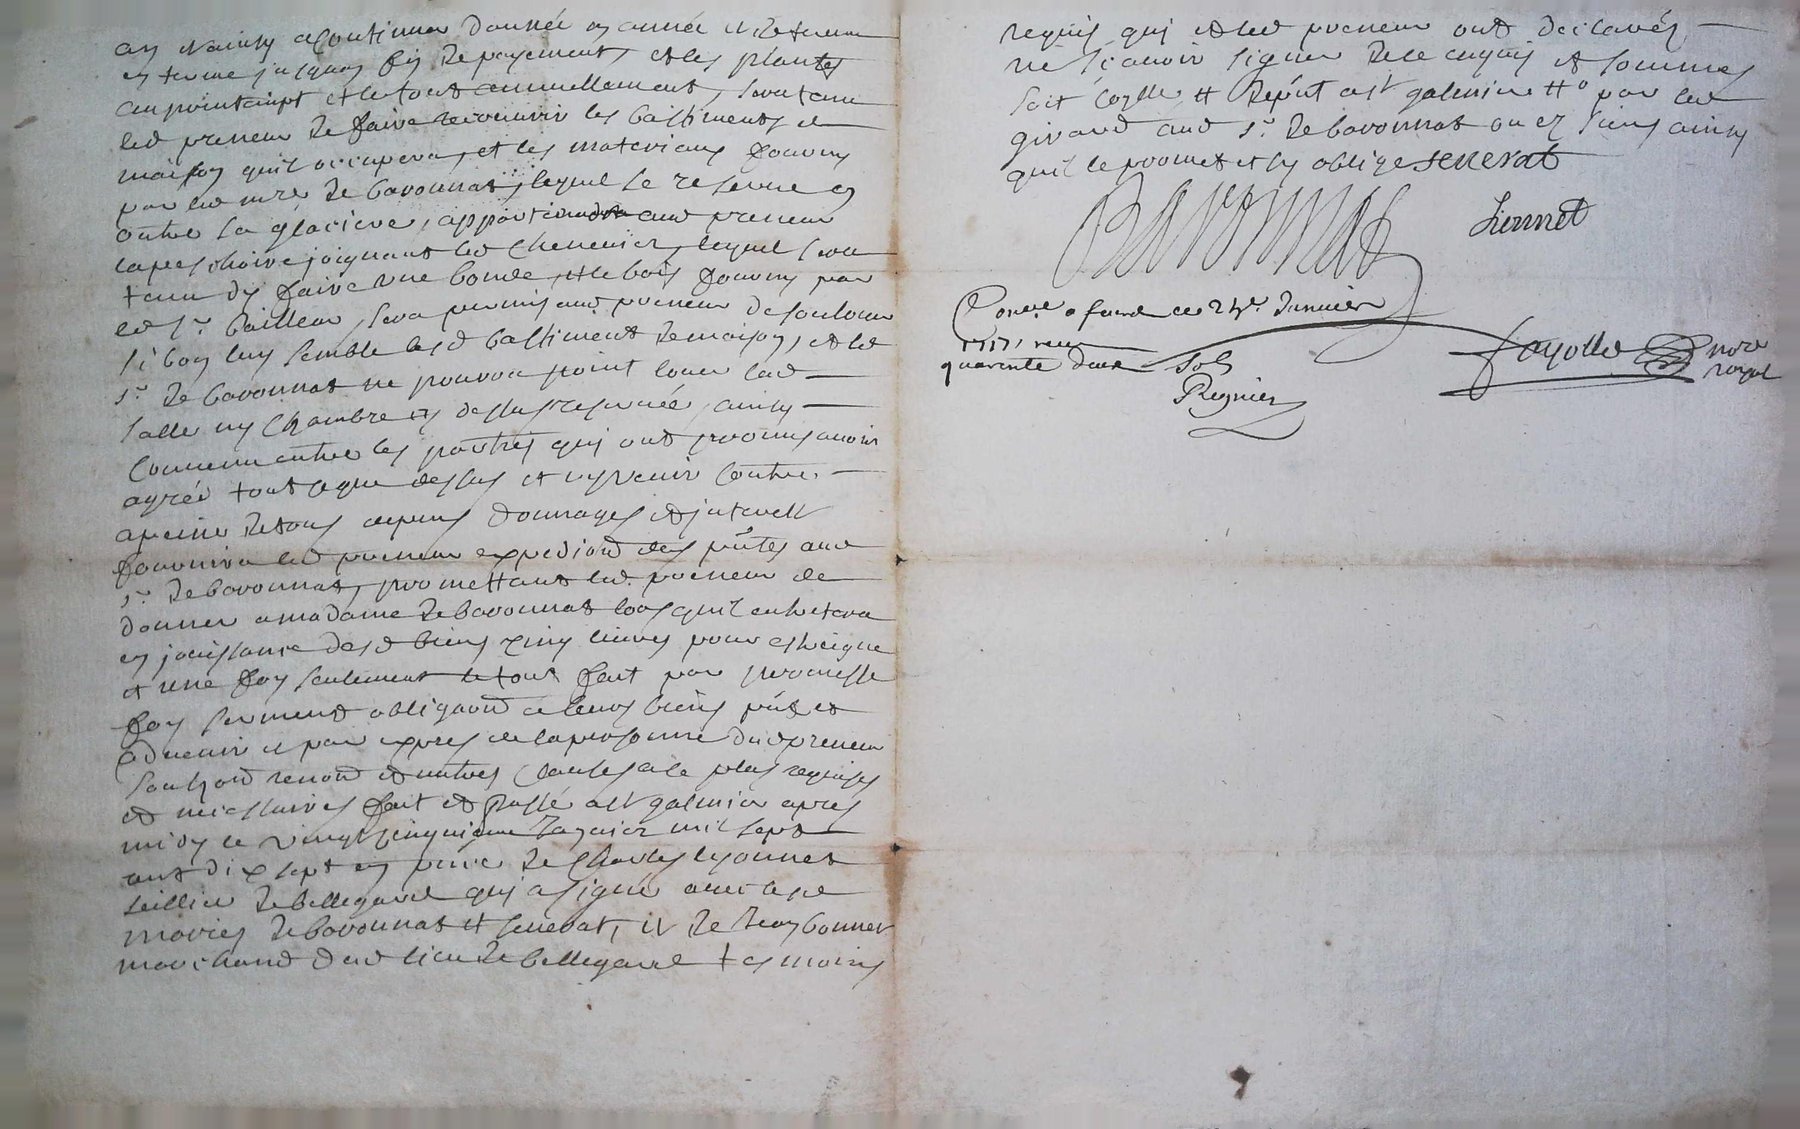 an et ainsy a continuer d'année en année et de terme
en terme jusques fin de payement, et les plantes
au printempt et le tout annuellement, sera tenu
led preneur de faire recouvrir les bastiments de
maison quil occupera, et les materiaux fournis
par led sieur de bavonnat, lequel se reserve en
outre la glaciere, appartiendra aud preneur
la peschoire joignant led chenevier, lequel sera
tenu dy faire une bonde, et le bois fourny par
led sr bailleur, sera permis aud preneur de soulouer
si bon luy semble lesd bastiment de maison, et led
sr de bavonnat ne pourra point louer lad
salle ny chambre cy dessus reservée, ainsy
convenu entre les parties qui ont promis avoir
agréé tout ce que dessus et ny venir contre
a peine de tous depens dommages et interest
fournira led preneur expediond des pntes aud
sr de bavonnat, promettant led preneur de
donner a madame de bavonnat lors quil entrera
en jouissance desd biens cinq livres pour estreigne
et une foy seulement le tout fait par promesse
foy serment obligaond de leurs biens pnts et
advenir et par expres de la personne dud preneur
soubzond renond et autres clauses a ce plus requises
et necessaires fait et passé a st galmier apres
midy le vingt cinquieme janvier mil sept
cent dix sept en pnce de Charles lyonnet
sellier de bellegarde qui a signé avec lesd
mariés de bavonnat et senevat, et de bonnet
marchand dud lieu de bellegarde tesmoins
requis qui et led preneur ont declarés
ne sçavoir signer de ce enquis et sommes
soit coellé a st galmier par led
giraud aud sr de bavonnat ou ez siens ainsy
quil le promet et sy oblige senevat
Bavonnat
Lionnet
Conrlé a feurs ce 24e Janvier
1717, reçu
quarente deux sols
Regnier
fayolle nore
royal